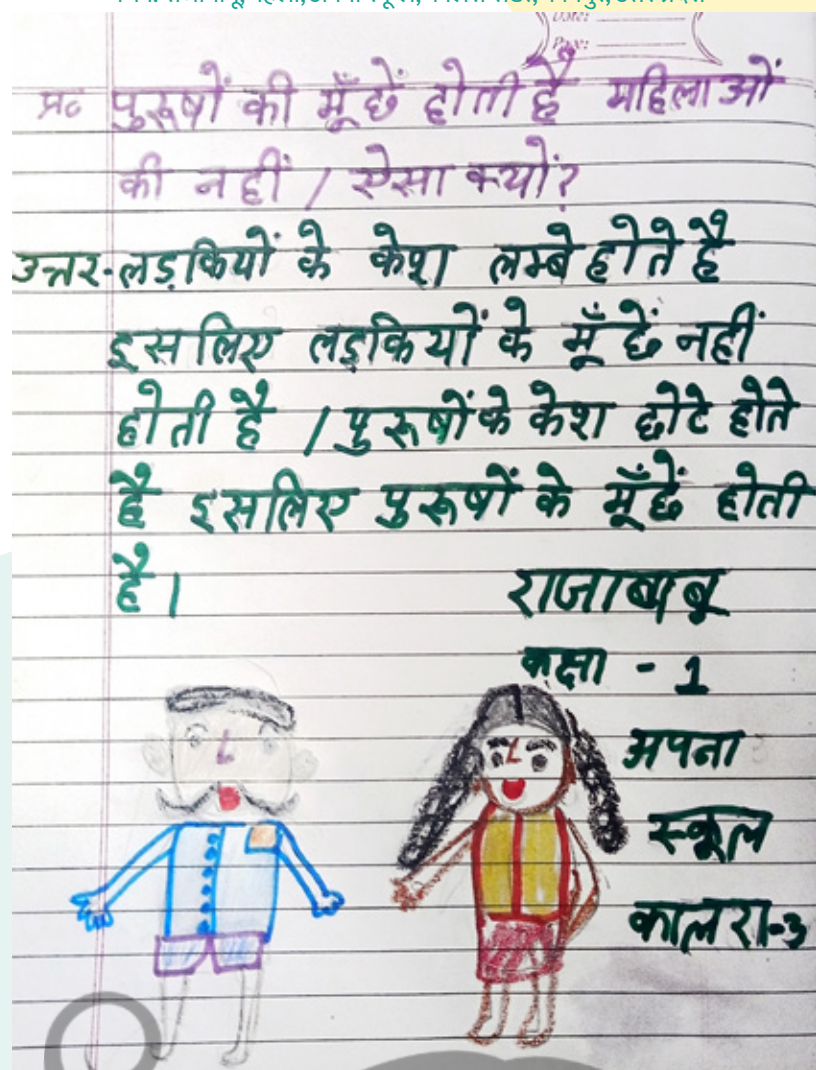 Date:
Page:
प्र० पुरूषों की मूँछें होती है महिलाओं
की नहीं / ऐसा क्यों?
उत्तर-लड़कियों के केश लम्बे होते है
इसलिए लड़कियों के मूँछें नहीं
होती है / पुरूषों के केश छोटे होते
है इसलिए पुरूषों के मूँछें होती
है।
राजाबाबू
कक्षा - 1
अपना
स्कूल
कालरा-3